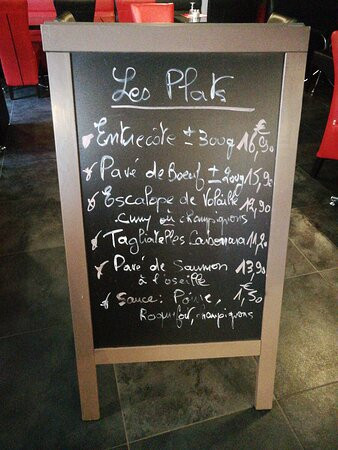 Les Plats
Entrecôte ± 300g 16,90€
Pavé de Boeuf ± 200g 15,90
Escalope de Volaille 12,90
Curry ou champignons
Tagliatelles Carbonara 11,20
Pavé de Saumon 13,90
à l'oseille
Sauce: Poivre, 1,50
Roquefort, champignons